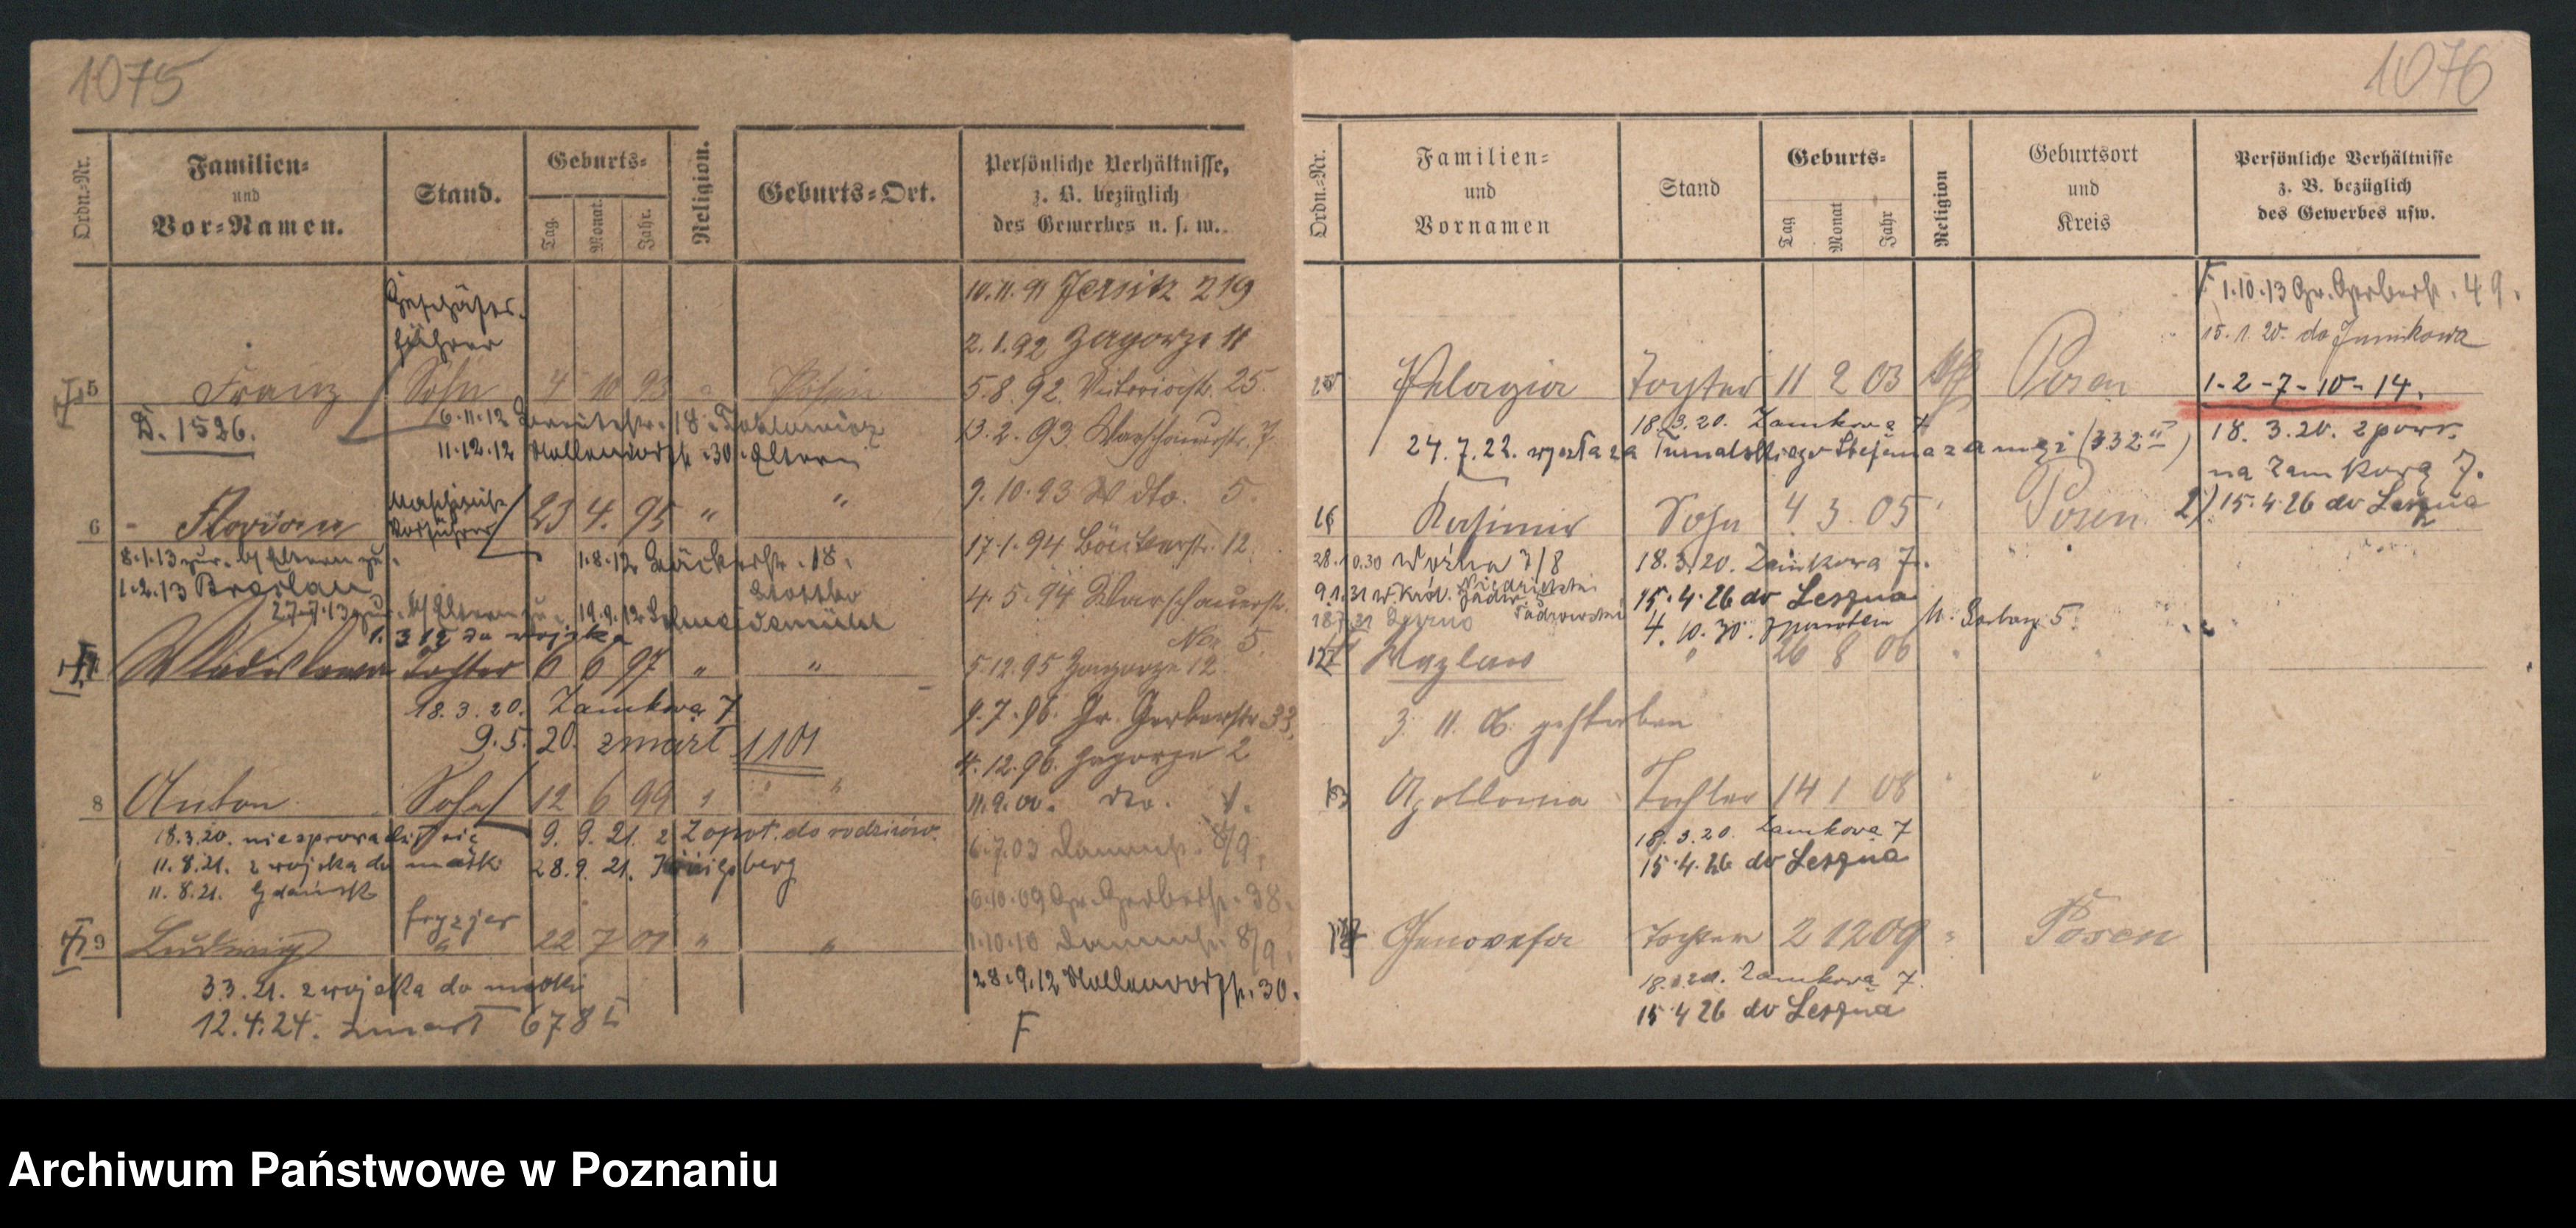 1075
Ordn.-Nr.
Familien-
und
Vor-Namen.
Stand.
Geburts-
Tag.
Monat.
Jahr.
Religion.
Geburts-Ort.
Persönliche Verhältnisse,
z. B. bezüglich
des Gewerbes u. s. w.
Geschäfts-
führer
10.11.91 Jersitz 219
2.1.92 Zagorze 11
5 Franz Sohn 4 10 93 " Posen
5.8.92. Victoriastr. 25.
D. 1526.
6.11.12 Breitestr. 18
11.12.12 30 Eltern
13.2.93 Warschauerstr. 7.
9.10.93 dto. 5.
6 - Florian 23 4. 95 " "
17.1.94 Bäckerstr. 12.
8.1.13 zur. Eltern
1.8.12 Bäckerstr. 18.
1.2.13 Breslau
4.5.94 Warschauerstr.
Nr. 5.
27.7.13 Eltern 19.9.12 Schneidemühl
1.3 19 do wojska
7 Wladislawa Tochter 6 6 97 " "
5.12.95 Zagorze 12
18.3.20. Zamkowa 7
9.7.96. Gr. Gerberstr. 33.
9.5.20. zmarł 1101
4.12.96. Zagorze 2
8 Anton Sohn 12 6 99 " "
11.9.00. do.
18.3.20. nie sprowadził się 9.9.21. z Zopot. do rodziców.
6.7.03 Dammstr. 8/9.
11.8.21. z wojska do matki 28.9.21. Königsberg
11.8.21. Gdańsk
6.10.09 Gr. Gerberstr. 38.
fryzjer
9 Ludwig " 22 7 01 " "
1.10.10 Dammstr. 8/9.
3.3.21. z wojska do matki
28.9.12 30.
12.4.24. zmarł 678
F
1076
Ordn.-Nr.
Familien-
und
Vornamen
Stand
Geburts-
Tag
Monat
Jahr
Religion
Geburtsort
und
Kreis
Persönliche Verhältnisse
z. B. bezüglich
des Gewerbes usw.
F 1.10.13 Gr. Gerberstr. 49.
15.1.20. do Junikowa
Pelagia Tochter 11 2 03 Posen
1-2-7-10-14.
18.3.20. Zamkowa 7
24.7.22. wyszła za Stefana za mąż (332 II)
18.3.20. z powr.
na Zamkową 7.
16 Kasimir Sohn 4 3. 05 Posen
2) 15.4.26 do Leszna
28.10.30 Woźna 7/8 18.3.20. Zamkowa 7.
15.4.26 do Leszna
4.10.30. z powrotem 5.
Wazlaw " 26 8 06 "
3. 11. 06. gestorben
Apollonia Tochter 14 1 08 " "
18.3.20. Zamkowa 7
15.4.26 do Leszna
Genovefa Tochter 2 12 09 " Posen
Zamkowa 7.
15 4 26 do Leszna
Archiwum Państwowe w Poznaniu